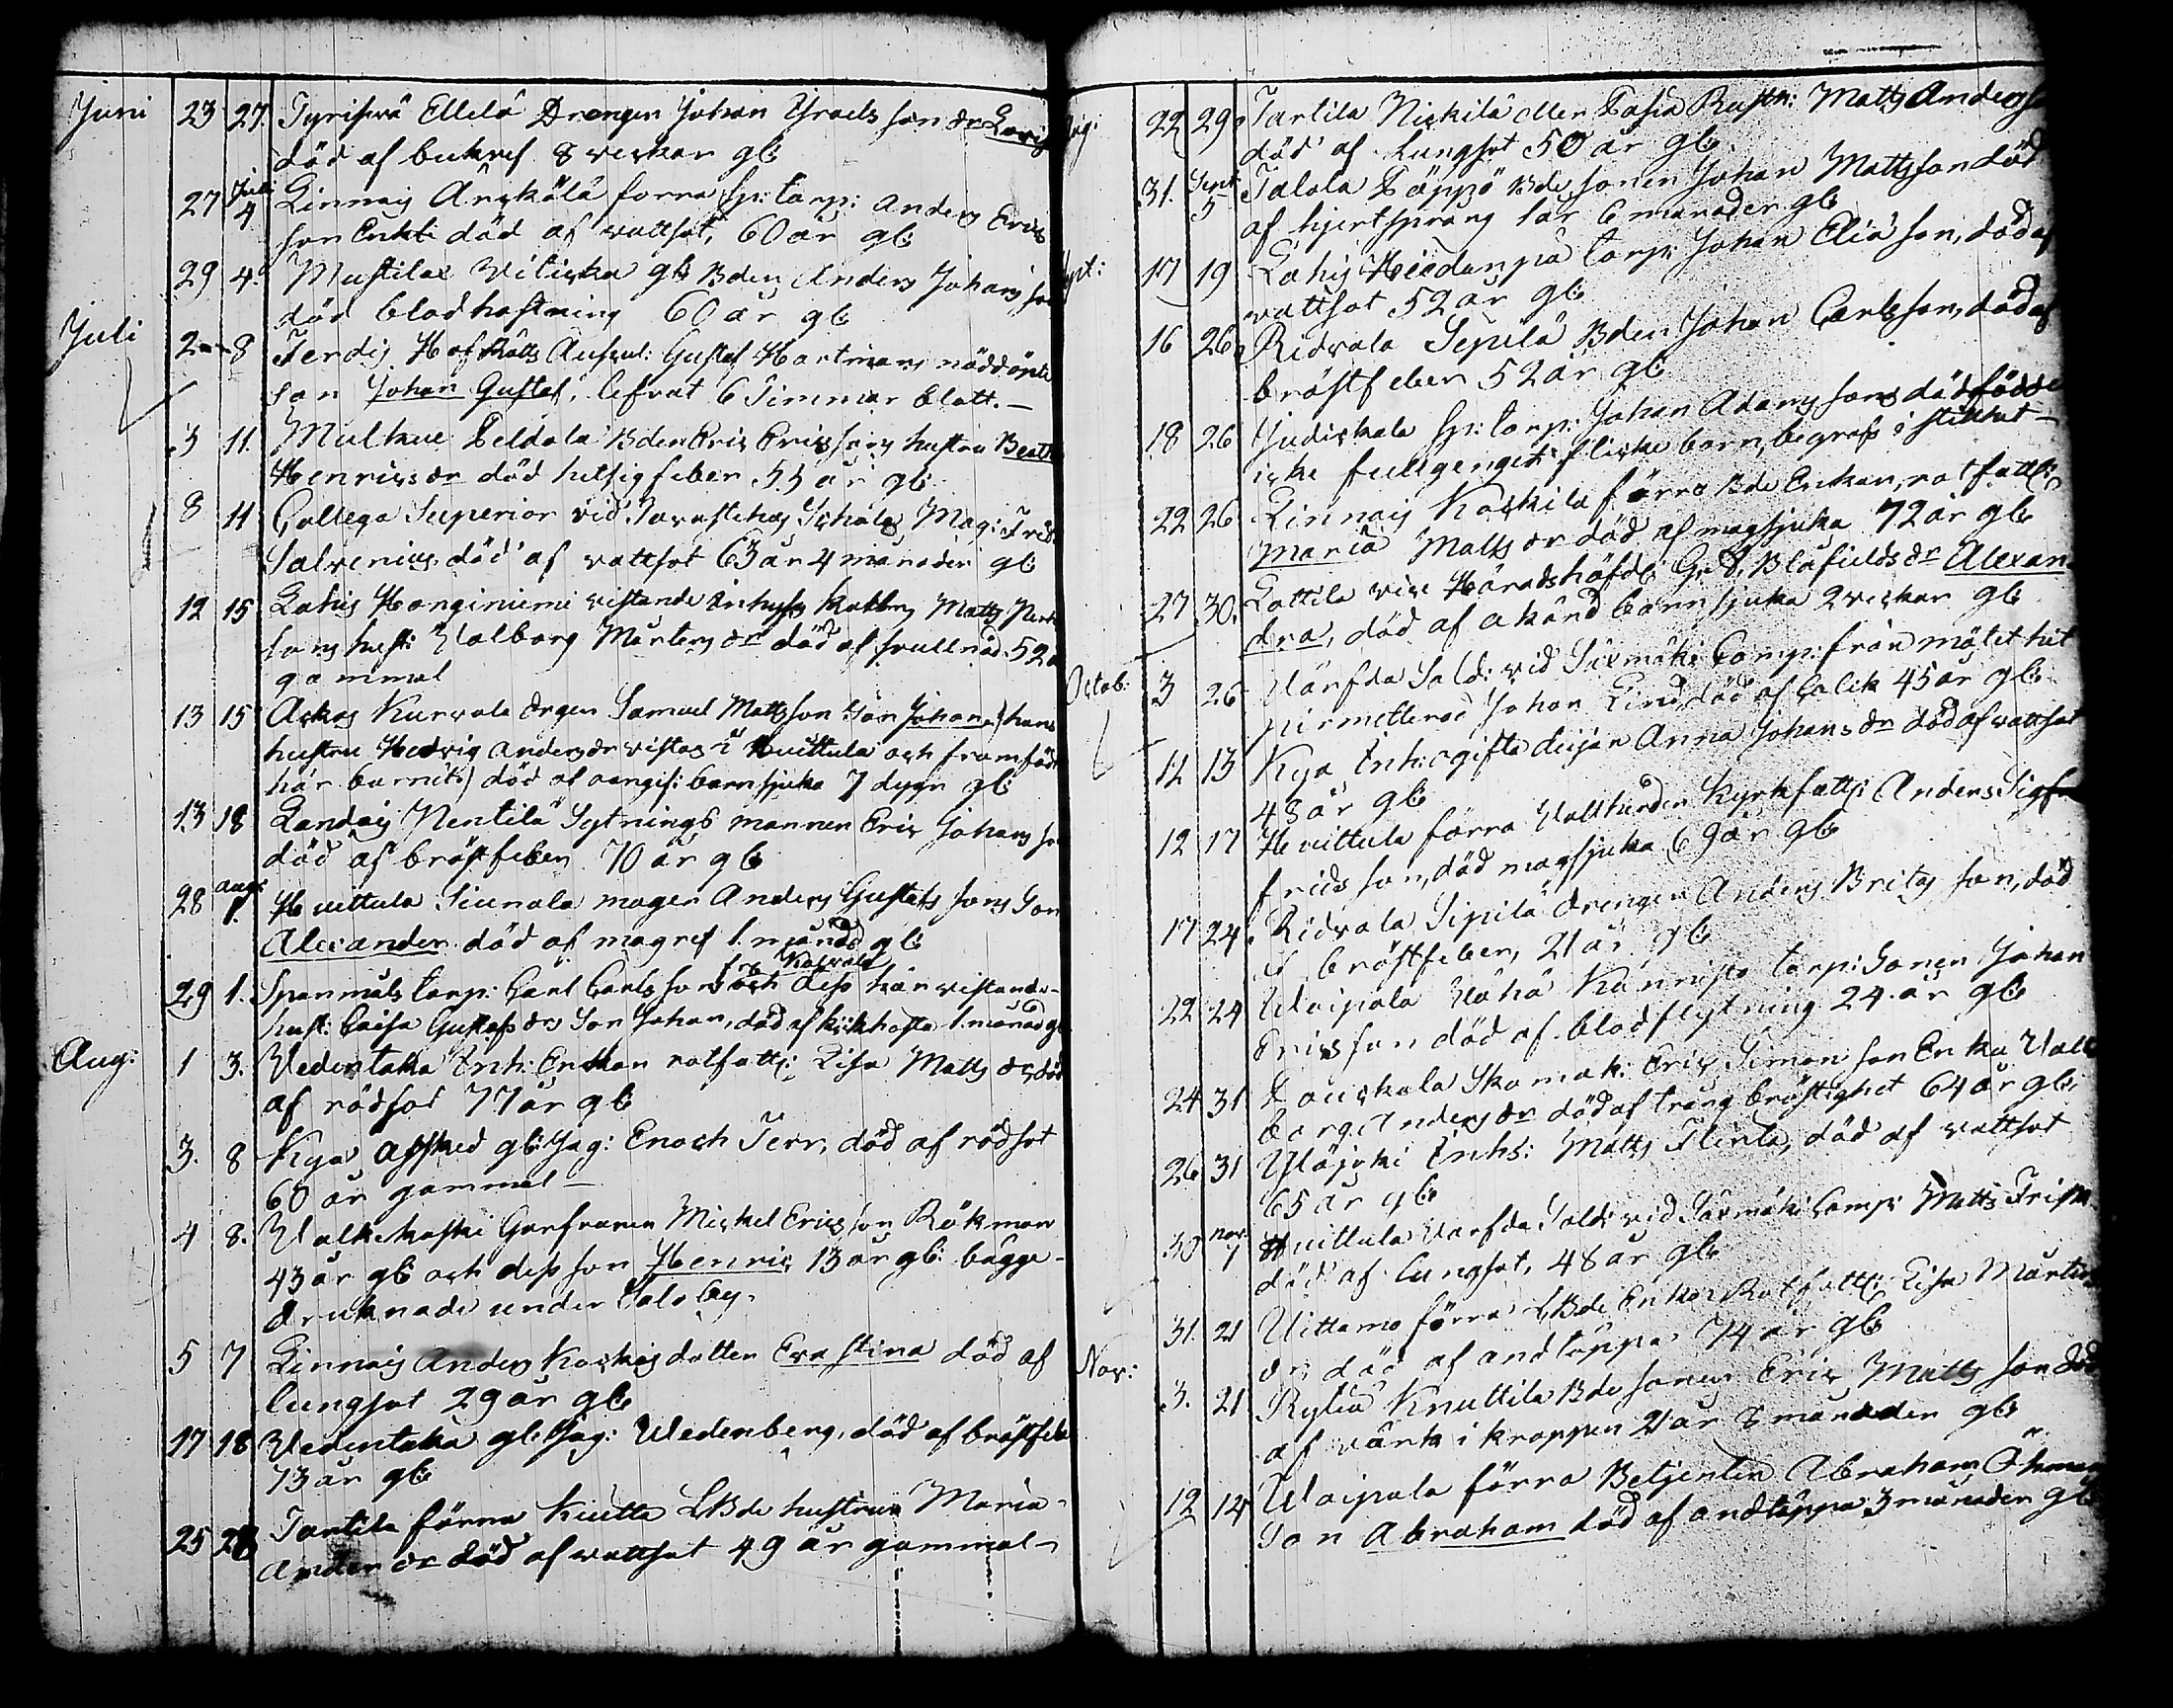 Juni 23 27. Tyriswä Ellelä Drengen Johan Israels son dr Lovis
död af bukref 8 veckor gl:
27 Juli 4 Linnais Arckälä forra Sp: torp: Anders Erics
son Enkl: död af vattsot, 60 år gl:
29 4. Mustila Vilicka gl: Bden Anders Johans son
död blodhostning 60 år gl:
Juli 2 8 Ferdis Hof Rätts Auscul: Gustaf Hartmans nöddöpte
son Johan Gustaf, lefvat 6 Timmar blott.—
3 11. Mulkue Peldola Bden Eric Ericssons hustru Beata
Henricsdr död hetsig feber 55 år gl:
8 11 Collega Superior vid Tavastehus Schola Mag: Fred:
Salvenius död af vattsot 63 år 4 månader gl:
12 15 Lahis Hanginiemi vistande Inhyses Matts
sons hust: Valborg Mårtens dr död af svullnad 52
gammal
13 15 Ackas Kurvola drgen Samuel Mattsson Son Johan (hans
hustru Hedvig Andersdr vistas i Huittula och framföd
här barnet) död af oangif: barnsjuka 7 dygn gl:
13 18 Kandais Nentilä Sytnings mannen Eric Johans son
död af bröstfeber 70 år gl:
28 aug: 1. Huittula Siurala mager Anders Gustafs sons Son
Alexander död af magref 1. månad gl:
frå Kalvola
29 1. Spanmåls torp: Carl Carlsson och dess här vistande
hust: Caisa Gustafs dr Son Johan, död af kikhosta 1. månad gl:
Aug: 1 3. Vedentaka Inh: Enkan rotfatt: Lisa Matts dr, död
af rödsot 77 år gl:
3. 8 Kya afsked gl: Jäg: Enoch Terr, död af rödsot
60 år gammal—
4 8. Valkikoski Garfvaren Mickel Ericsson Rökman
43 år gl: och dess son Henric 13 år gl: bägge
druknade under Salo by.
5 7 Linnais Anders Kockis dotter Eva Stina död af
lungsot 29 år gl:
17 18 Vedentaka gl: Jäg: Wedenberg, död af bröstfeb
73 år gl:
25 28 Tantila förra Kiutta LBde hustrun Maria
Anders dr död af vattsot 49 år gammal—
Aug: 22 29. Tartila Nickilä eller Pasia Rusth: Matts Anders
död af lungsot 50 år gl:
31. Sept 5 Talola Päppö Bde Sonen Johan Mattsson död
af hjertsprång 1 år 6 månader gl:
Sept: 17 19 Lahis Hiedanpä torp: Johan Elia son, död af
vattsot 52 år gl:
16 26. Ridvala Sepilä Bden Johan Carlsson, död af
bröstfeber 52 år gl:
18 26 Judickala Sp: torp: Johan Adams sons dödfödde
icke fullgenget flicke barn, begrafs i stillhet—
22 26 Linnais Kockila förre Bde Enkan, rotfatt:
Maria Matts dr död af magsjuka 72 år gl:
27 30. Lottila vice Häradshöfd: G: D: Blåfields dr Alexan
dra, död af okänd barnsjuka 2 veckor gl:
Octob: 3 26 Värfda Sold: vid Säxmäki Comp: från mötet hit
pirmitterad Johan Lind, död af Colik 45 år gl:
11 13 Kya Inh: ogifta Pigan Anna Johans dr död af vattsot
48 år gl:
12 17 Huittula forra Vallhunden Kyrkfatt: Anders Sigfr
frids son, död magsjuka 69 år gl:
17 24. Ridvala Sipilä drengen Anders Britas son, död
af bröstfeber, 21 år gl:
22 24 Uoipala Vähä Kannisto torp: Sonen Johan
Ericsson död af blodflytning 24 år gl:
24 31 Lauckala Skomak: Eric Simons son Enka Val
borg Anders dr död af trång bröstighet 64 år gl:
26 31 Yläjoki Inhs: Matts Flinta, död af vattsot
65 år gl:
30 nov: 7 Huittula Värfda Sold: vid Säxmäki Comp: Matts Frisk
död af lungsot, 48 år gl:
31. 21 Uittamo förra LBde Enkan Rotfatt: Lisa Mårtens
dr; död af andtäppa 74 år gl:
Nov: 3. 21 Rytiä Knuttila Bde sonen Eric Matts son död
af värk i kroppen 21 år 8 månader gl:
12 14 Uoipala förra Betjenten Abraham Öhman
Son Abraham död af andtäppa 3 månader gl: